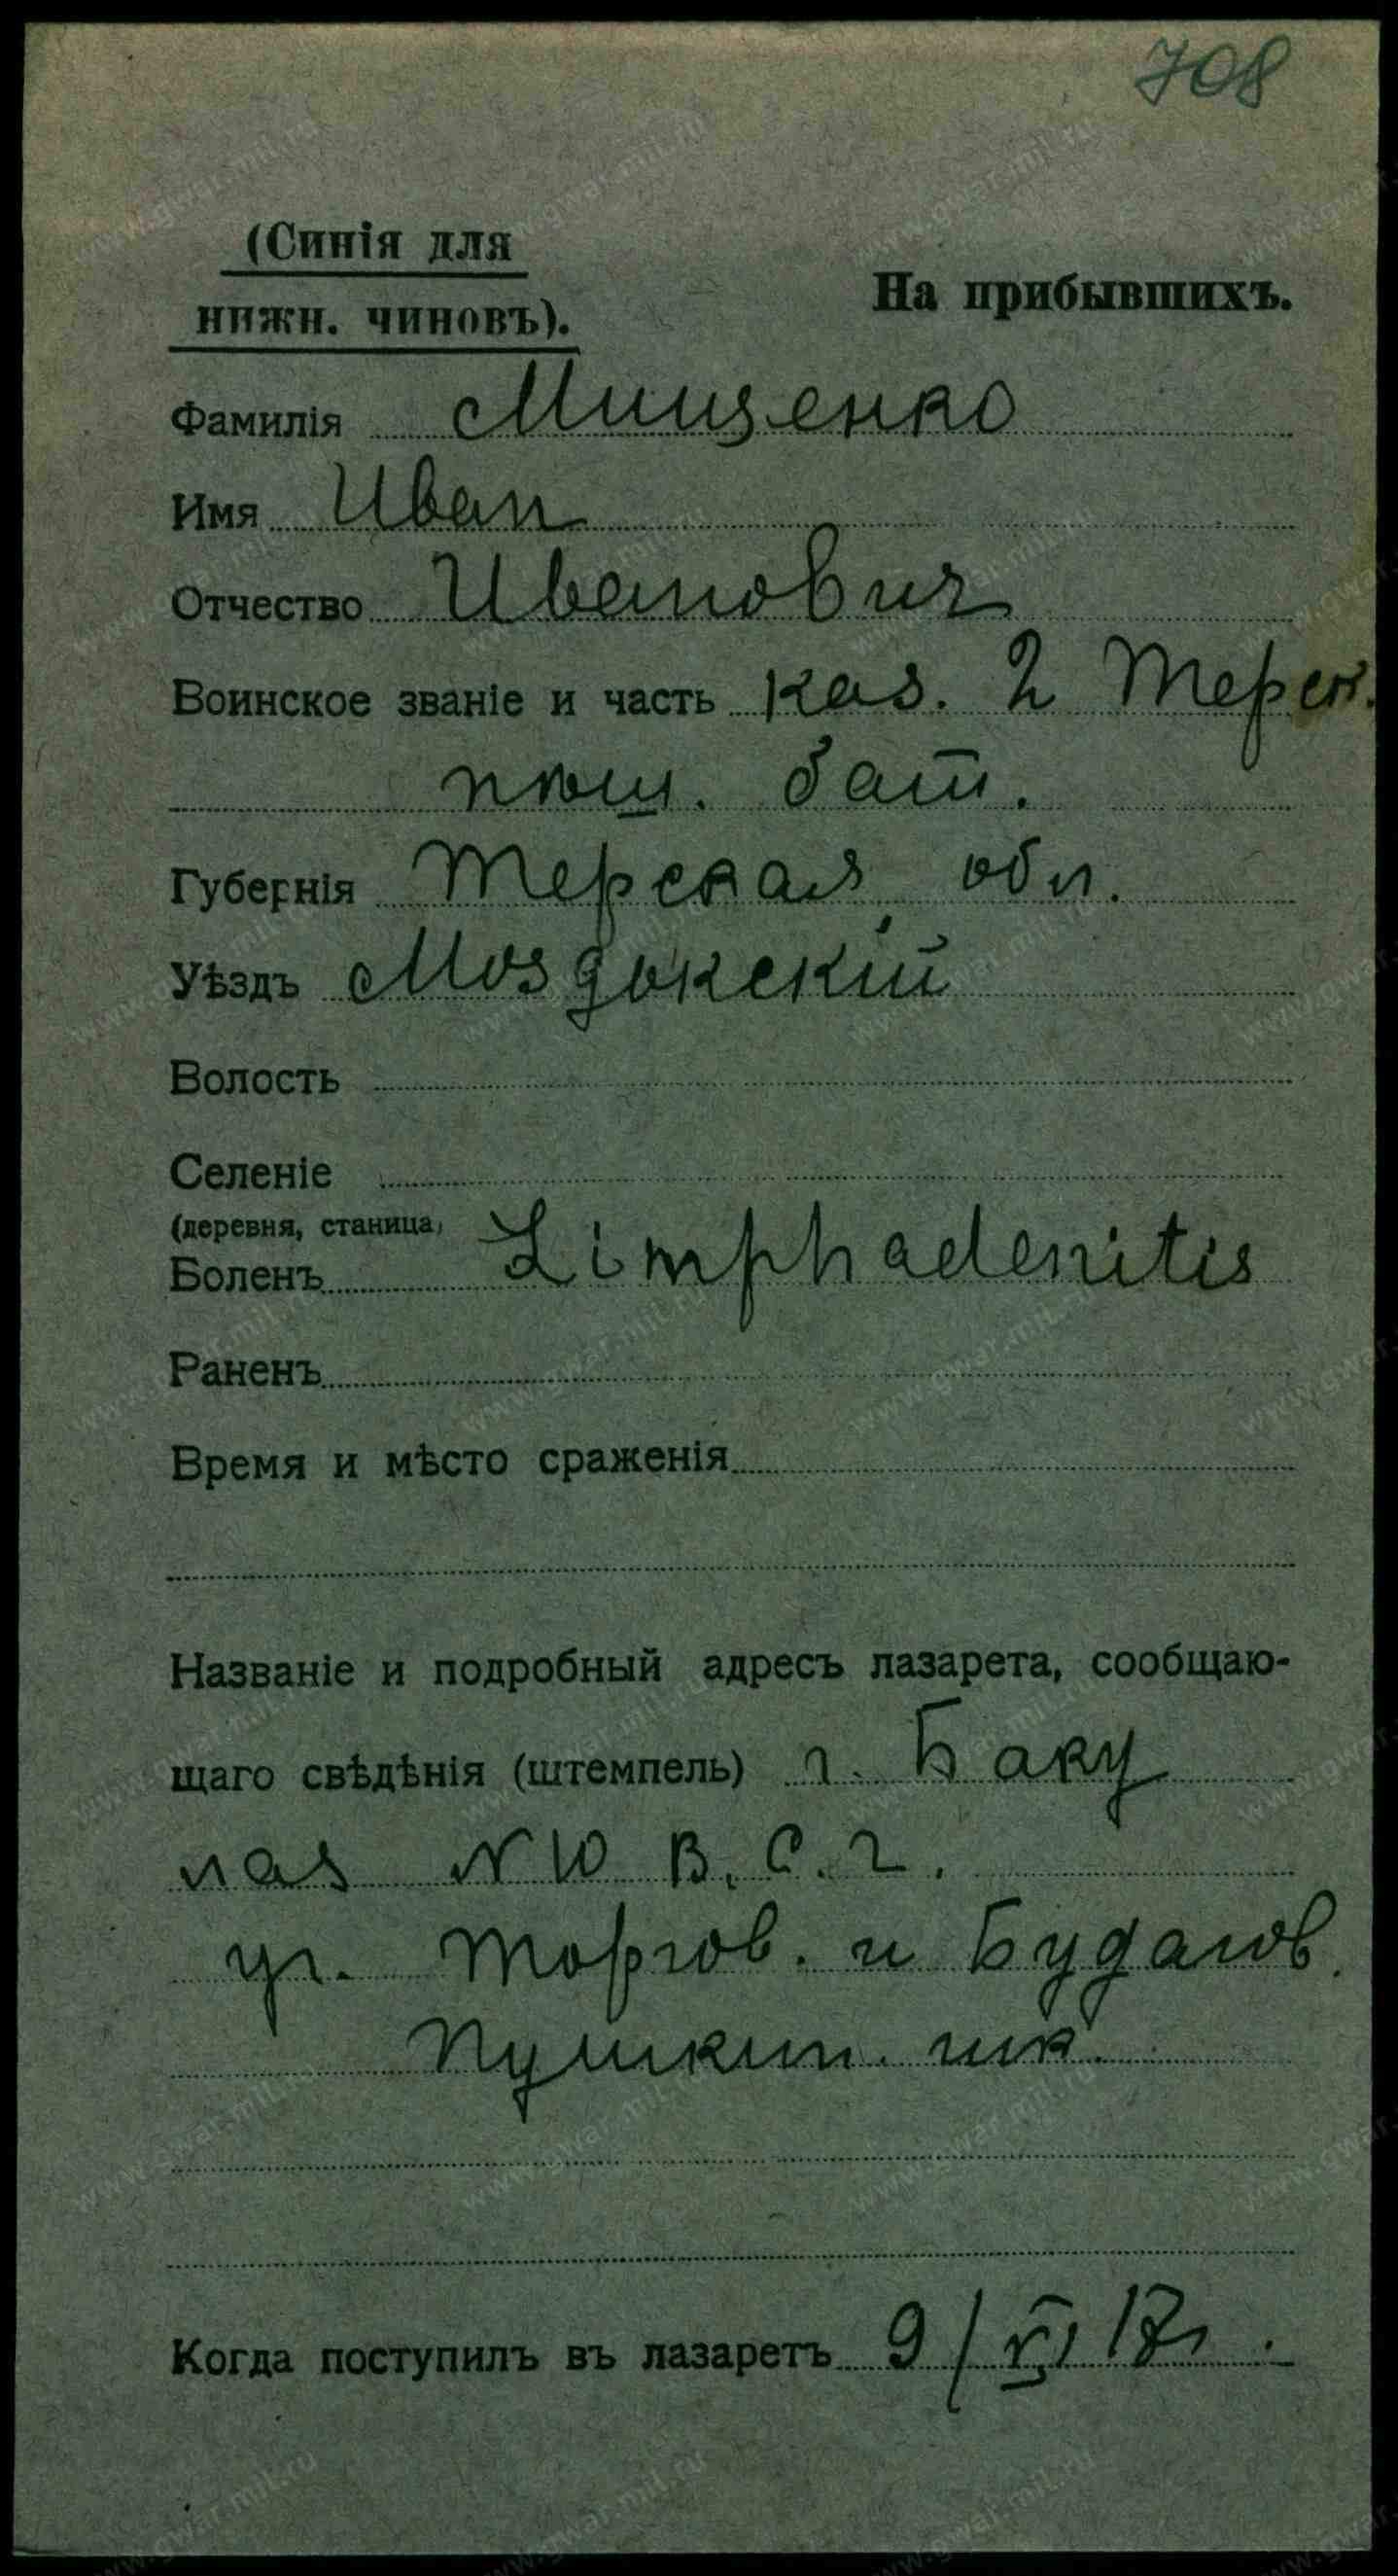 708
(Синія для
нижн. чиновъ).
На прибывшихъ.
Фамилія Мищенко
Имя Иван
Отчество Иванович
Воинское званіе и часть каз. 2 Терск.
пласт. бат.
Губернія Терская обл.
Уѣздъ Моздокскій
Волость
Селеніе
(деревня, станица)
Боленъ Limphadenitis
Раненъ
Время и мѣсто сраженія
Названіе и подробный адресъ лазарета, сообщаю-
щаго свѣдѣнія (штемпель) г. Баку
лаз N 10 В. С. Г.
уг. Торгов. и Будагов.
Пушкин. шк.
Когда поступилъ въ лазаретъ 9/VI 17 г.